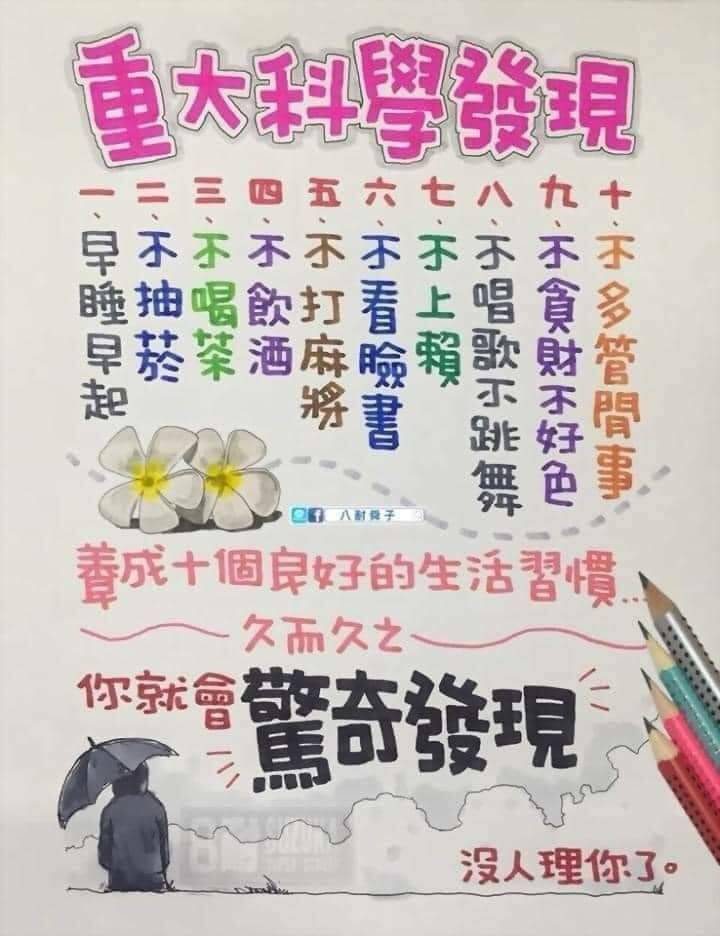 重大科學發現
一、早睡早起
二、不抽菸
三、不喝茶
四、不飲酒
五、不打麻將
六、不看臉書
七、不上賴
八、不唱歌不跳舞
九、不貪財不好色
十、不多管閒事
八耐舜子
養成十個良好的生活習慣...
久而久之
你就會驚奇發現
沒人理你了。